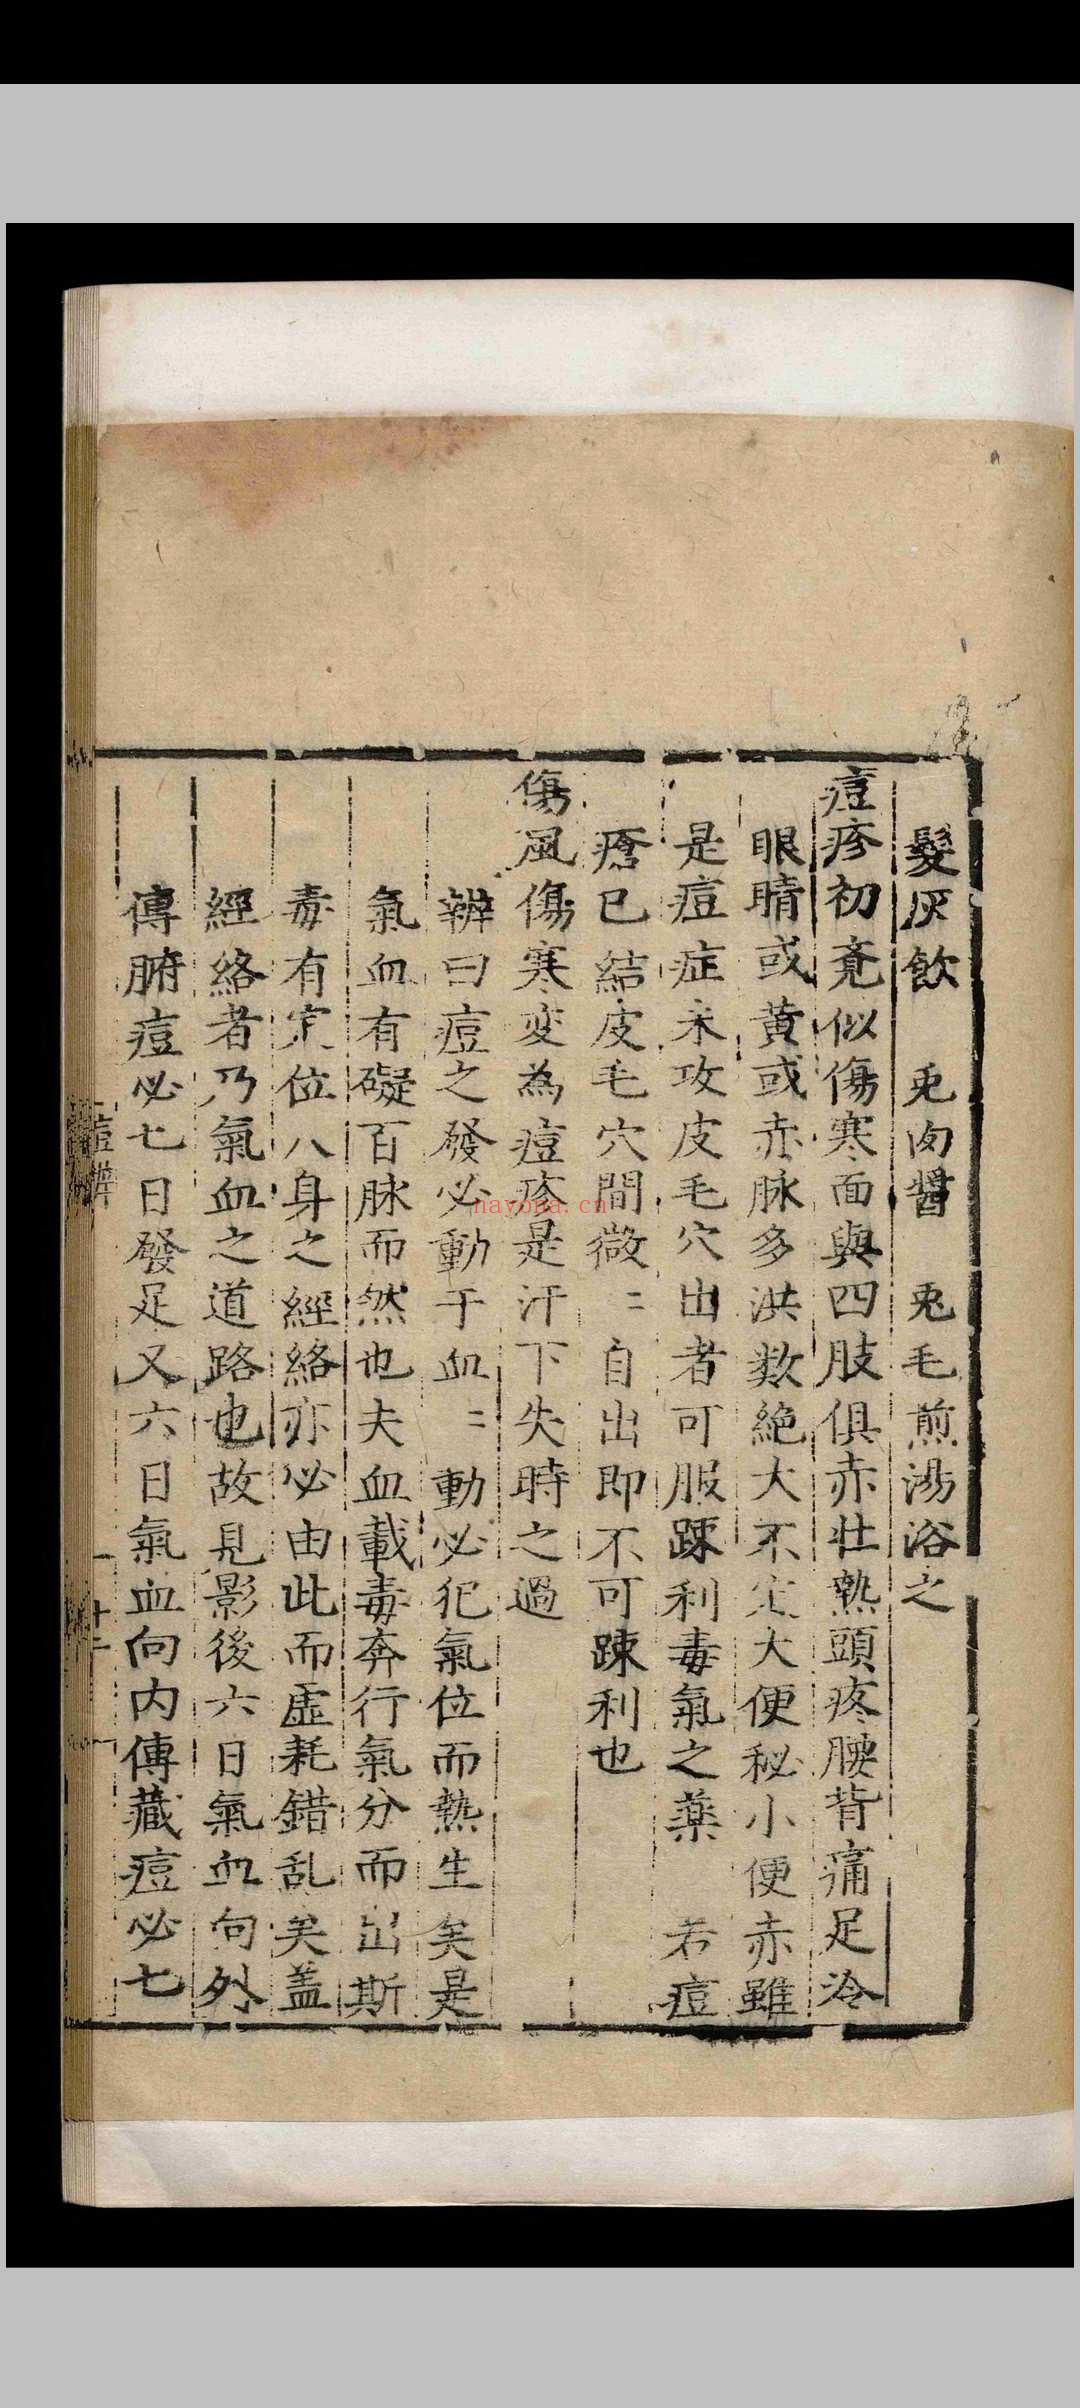 髮灰飲　兎肉醬　兎毛煎湯浴之
痘疹初覔似傷寒面與四肢俱赤壮熱頭疼腰背痛足冷
眼睛或黃或赤脉多洪数絶大不定大便秘小便赤雖
是痘症未攻皮毛穴出者可服踈利毒氣之藥　若痘
瘡已結皮毛穴間微〻自出即不可踈利也
傷風傷寒変為痘疹是汗下失時之過
辨曰痘之發必動于血〻動必犯氣位而熱生矣是
氣血有礙百脉而然也夫血載毒奔行氣分而出斯
毒有定位八身之經絡亦必由此而虛耗錯乱矣盖
經絡者乃氣血之道路也故見影後六日氣血向外
傳腑痘必七日發足又六日氣血向内傳藏痘必七
痘辨
十二
nayona.cn